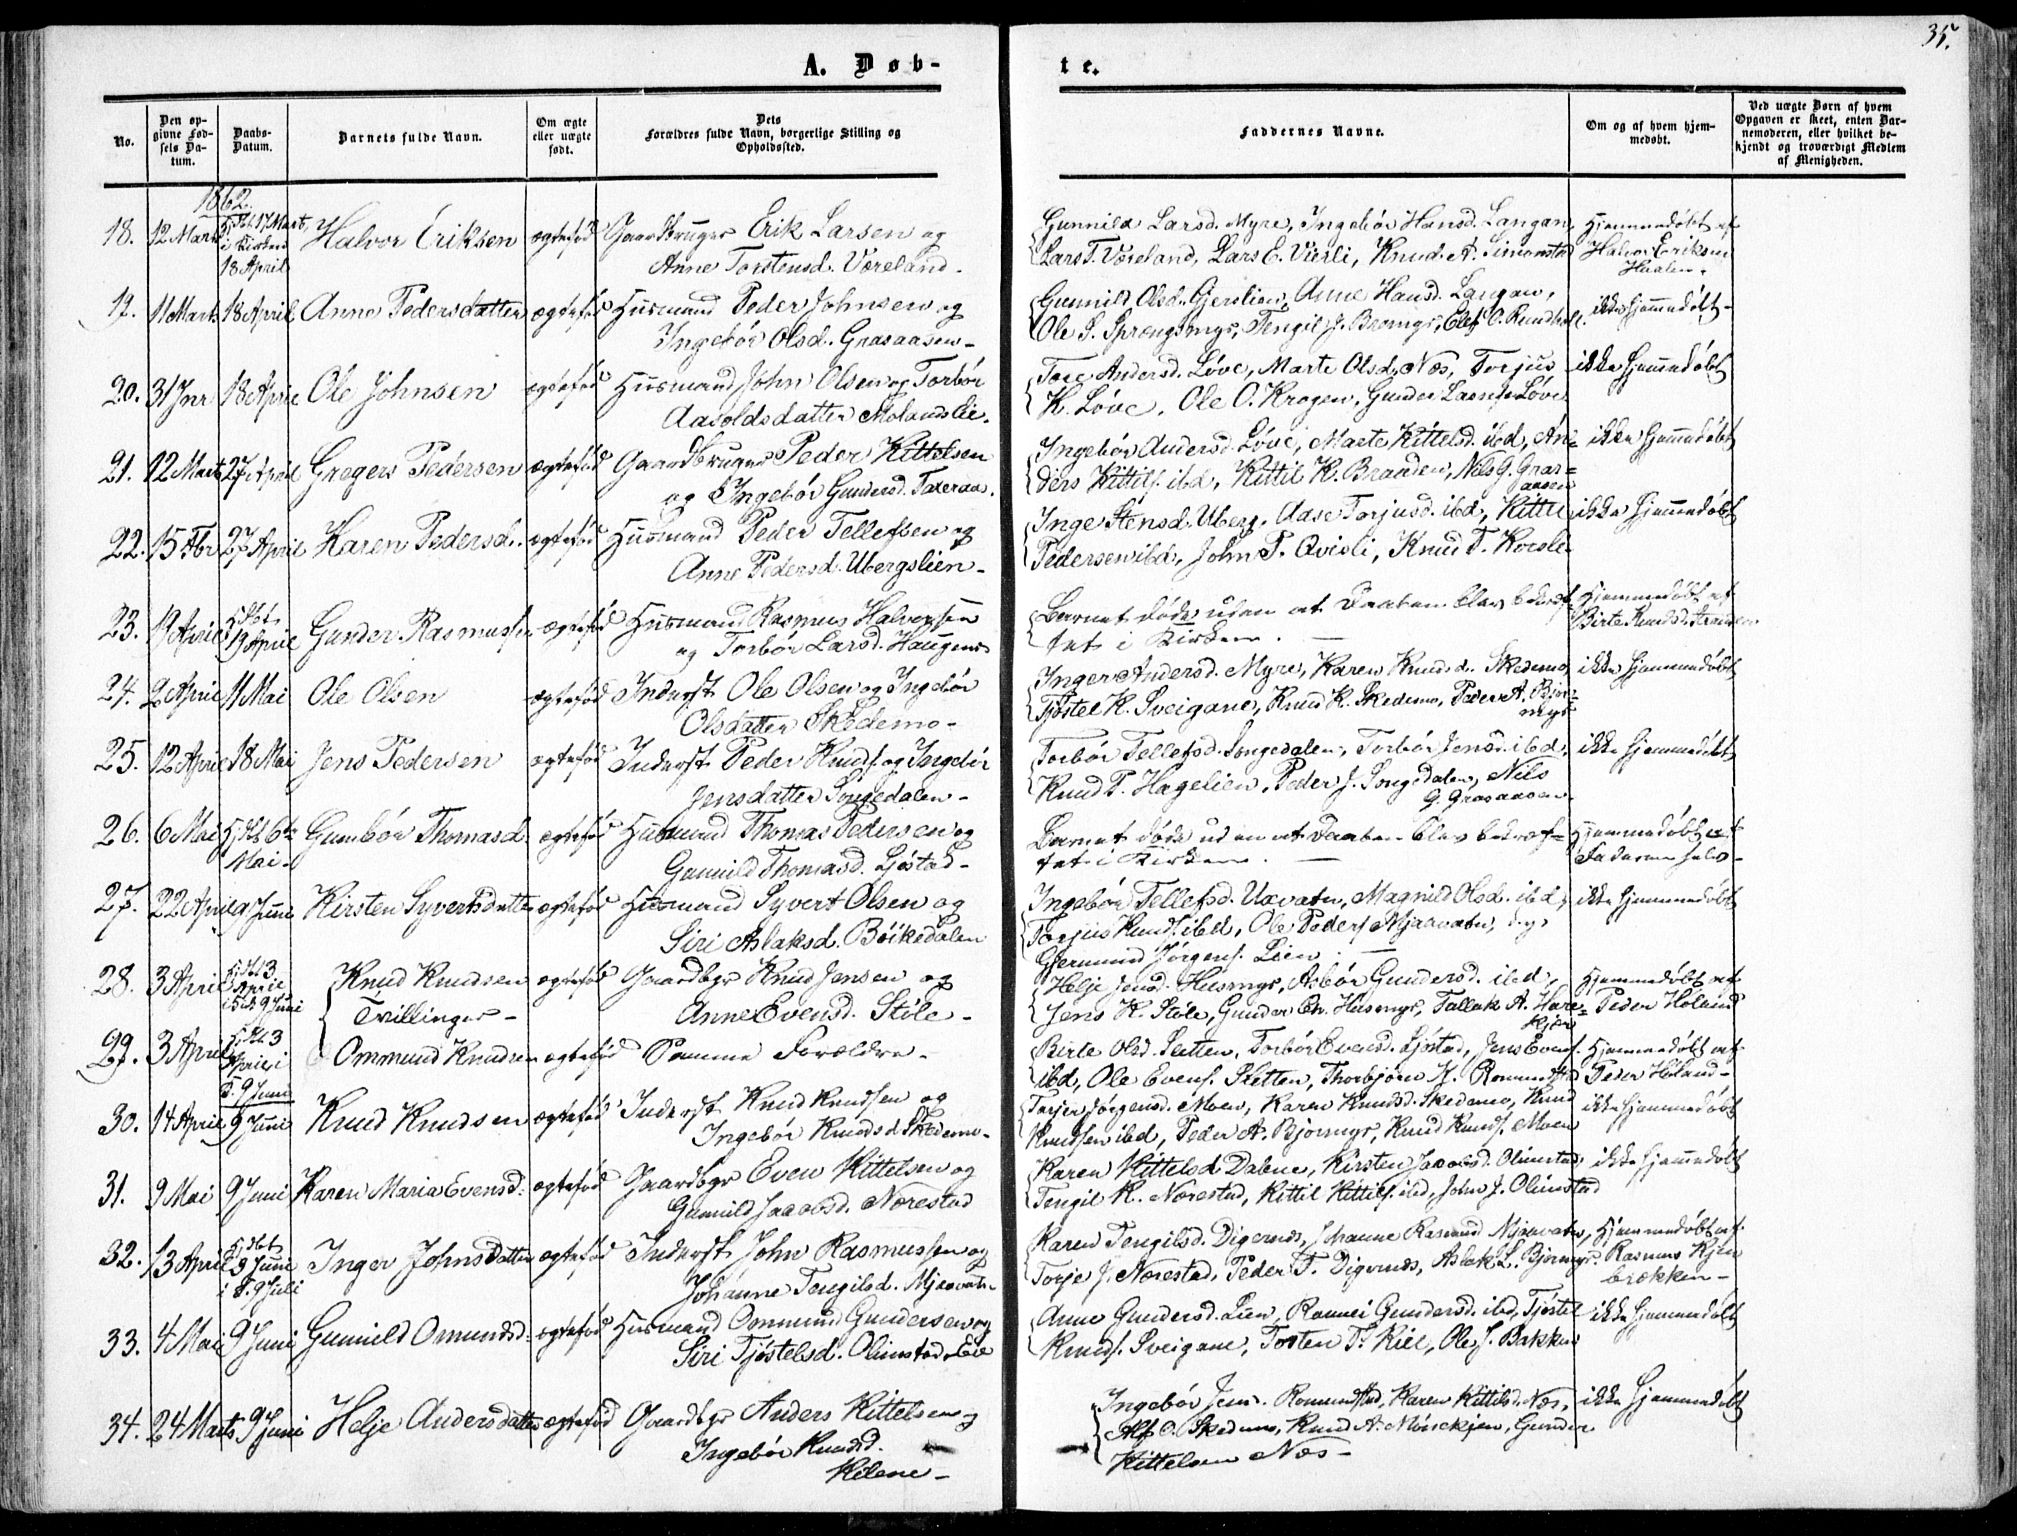 35.
A. Døb-
te.
No.
Den op-
givne Fød-
sels Da-
tum.
Daabs-
Datum.
Barnets fulde Navn.
Om ægte
eller uægte
født.
Dets
Forældres fulde Navn, borgerlige Stilling og
Opholdssted.
Faddernes Navne.
Om og af hvem hjem-
medøbt.
Ved uægte Børn af hvem
Opgaven er skeet, enten Bar-
nemoderen, eller hvilket be-
kjendt og troværdigt Medlem
af Menigheden.
1862.
18. 12 Marts Hjdbt 17 Marts, i Kirken 18 April Halvor Eriksen ægtefød Gaardbruger Erik Larsen og
Anne Torstensd. Væreland.
Gunnild Larsd. Myre, Ingebør Hansd. Langan,
Lars T. Væreland, Lars E. Vierli, Knud A. Simonstad
Hjemmedøbt af
Halvor Eriksen
19. 11 Marts 18 April Anne Pedersdatter ægtefød Husmand Peder Johnsen og
Ingebør Olsd. Grasaasen-
Gunnild Olsd. Gjerslien, Anne Hansd. Langan,
Ole S. Sprengsmyr, Tengil J. Bromyr, Olef O.
ikke hjemmedøbt-
20. 31 Jnr 18 April Ole Johnsen ægtefød Husmand John Olsen og Torbør
Aasoldsdatter Molandslie.
Tore Andersd. Løve, Marte Olsd. Næs, Torjus
K. Løve, Ole O. Krogen, Gunder Larss. Løve
ikke hjemmedøbt
21. 12 Marts 27 April Gregers Pedersen ægtefød Gaardbruger Peder Kittelsen
og Ingebør Gundersd. Taxeraas.
Ingebør Andersd. Løve, Marte Kittelsd. ibd, An-
ders Kittils. ibd, Kittil K. Branden, Nils G. Gras=
aasen
ikke hjemmedøbt
22. 15 Fbr 27 April Karen Pedersd. ægtefød Husmand Peder Tellefsen og
Anne Pedersd. Ubergslien-
Inge Stensd. Uberg, Aase Torjusd. ibd, Kittil
Pedersen ibd, John P. Qvisli, Knud T.
ikke hjemmedøbt
23. 19 April Hjdbt 19 April Gunder Rasmussen ægtefød Husmand Rasmus Halvorsen
og Torbør Larsd. Haugene
Barnet døde uden at Daaben blev bekræf-
tet i Kirken. -
Hjemmedøbt af
Birte Knudsd.
24. 2 April 11 Mai Ole Olsen ægtefød Inderst Ole Olsen og Ingebør
Olsdatter Skedemo-
Inger Andersd. Myre, Karen Knudsd. Skedemo,
Tjøstel K. Sveigane, Knud K. Skedemo, Peder A. Bjor-
myr
ikke hjemmedøbt
25. 12 April 18 Mai Jens Pedersen ægtefød Inderst Peder Knuds. og Ingebør
Jensdatter Songedalen-
Torbør Tellefsd. Songedalen, Torbør Jensd. ibd,
Knud T. Hagelien, Peder J. Songedalen, Nils
G. Grasaasen
ikke hjemmedøbt
26. 6 Mai Hjdbt 6te Mai- Gunbør Thomasd. ægtefød Husmand Thomas Pedersen og
Gunnild Thomasd. Sjøstad-
Barnet døde uden at Daaben blev bekræf-
tet i Kirken. -
Hjemmedøbt af
Faderen selv-
27. 22 April 9 Juni Kirsten Syvertsdatter ægtefød Husmand Syvert Olsen og
Siri Aslaksd. Bøikedalen
Ingebør Tellefsd. Uxvatn, Magnild Olsd. ibd,
Torjus Knuds. ibd, Ole Peders. Mjaavatn, og
Gjermund Jørgens. Lien. -
ikke hjemmedøbt
28. 3 April Hjdbt 3 April i K. 9 Juni Knud Knudsen ægtefød Gaardbgr Knud Jensen og
Tvillinger- Anne Evensd. Støle-
Helje Jensd. Husmyr, Asbør Gundersd. ibd,
Jens K. Støle, Gunder Ch. Husmyr, Tallak A. Hare-
kjær
Hjemmedøbt af
Peder Høland
29. 3 April Hjdbt 3 April i K. 9 Juni Ommund Knudsen ægtefød Samme Forældre-
Birte Olsd. Sletten, Torbør Evensd. Sjøstad, Jens Evens.
ibd, Ole Evens. Sletten, Thorbjørn K. Romundstad
Hjemmedøbt af
Peder Høland-
30. 14 April 9 Juni Knud Knudsen ægtefød Inderst Knud Knudsen og
Ingebør Knudsd. Skedemo-
Torjer Jørgensd. Moen, Karen Knudsd. Skedemo, Knud
Knudsen ibd, Peder A. Bjormyr, Knud Knuds. Moen
ikke hjemmedøbt
31. 9 Mai 9 Juni Karen Maria Evensd. ægtefød Gaardbgr Even Kittelsen og
Gunnild Jacobsd. Nærestad
Karen Kittelsd. Dalene, Kirsten Jacobsd. Olimstad,
Tengil K. Nærestad, Kittil Kittils. ibd, John J. Olimstad
ikke hjemmedøbt
32. 13 April Hjdbt 9 Juni i K. 9 Juli Inger Johnsdatter ægtefød Inderst John Rasmussen og
Johanne Tengilsd. Mjaavatn-
Karen Tengilsd. Digernes, Johanne Rasmusd. Mjaavatn,
Torje J. Nærestad, Peder T. Digernes, Aslak L. Bjormyr.
Hjemmedøbt af
Rasmus Kjen
brækken-
33. 4 Mai 9 Juni Gunnild Omundsd. ægtefød Husmand Ommund Gundersen og
Siri Tjøstelsd. Olimstad Eie
Anne Gundersd. Lien, Ronnei Gundersd. ibd, Tjøstel
Knuds. Sveigane, Torsten T. Kiil, Ole J. Bakken
ikke hjemmedøbt
34. 24 Marts 9 Juni Helje Andersdatter ægtefød Gaardbgr Anders Kittelsen og
Ingebør Knudsd.
Kilene-
Ingebør Jens. Romundstad, Karen Kittilsd. Næs,
Alf O. Skedemo, Knud A. Mørekjen, Gunder
Kittelsen Næs-
ikke hjemmedøbt